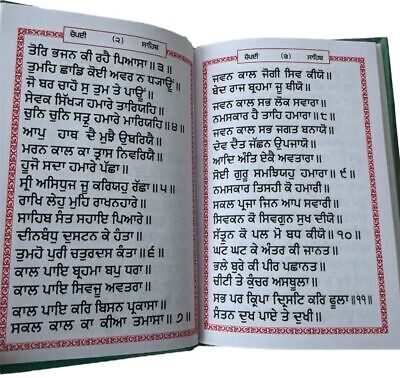 ਚੌਪਈ (੨) ਸਾਹਿਬ
ਤੋਰਿ ਭਜਨ ਕੀ ਰਹੈ ਪਿਆਸਾ॥੩॥
ਤੁਮਹਿ ਛਾਡਿ ਕੋਈ ਅਵਰ ਨ ਧਯਾਊਂ॥
ਜੋ ਬਰ ਚਾਹੌਂ ਸੁ ਤੁਮ ਤੇ ਪਾਊਂ॥
ਸੇਵਕ ਸਿੱਖ੍ਯ ਹਮਾਰੇ ਤਾਰਿਯਹਿ॥
ਚੁਨਿ ਚੁਨਿ ਸਤ੍ਰੁ ਹਮਾਰੇ ਮਾਰਿਯਹਿ॥੪॥
ਆਪੁ ਹਾਥ ਦੈ ਮੁਝੈ ਉਬਰਿਯੈ॥
ਮਰਨ ਕਾਲ ਕਾ ਤ੍ਰਾਸ ਨਿਵਰਿਯੈ॥
ਹੂਜੋ ਸਦਾ ਹਮਾਰੇ ਪੱਛਾ॥
ਸ੍ਰੀ ਅਸਿਧੁਜ ਜੂ ਕਰਿਯਹੁ ਰੱਛਾ॥੫॥
ਰਾਖਿ ਲੇਹੁ ਮੁਹਿ ਰਾਖਨਹਾਰੇ॥
ਸਾਹਿਬ ਸੰਤ ਸਹਾਇ ਪਿਆਰੇ॥
ਦੀਨਬੰਧੁ ਦੁਸਟਨ ਕੇ ਹੰਤਾ॥
ਤੁਮਹੋ ਪੁਰੀ ਚਤੁਰਦਸ ਕੰਤਾ॥੬॥
ਕਾਲ ਪਾਇ ਬ੍ਰਹਮਾ ਬਪੁ ਧਰਾ॥
ਕਾਲ ਪਾਇ ਸਿਵਜੂ ਅਵਤਰਾ॥
ਕਾਲ ਪਾਇ ਕਰਿ ਬਿਸਨ ਪ੍ਰਕਾਸਾ॥
ਸਕਲ ਕਾਲ ਕਾ ਕੀਆ ਤਮਾਸਾ॥੭॥
ਚੌਪਈ (੩) ਸਾਹਿਬ
ਜਵਨ ਕਾਲ ਜੋਗੀ ਸਿਵ ਕੀਯੋ॥
ਬੇਦ ਰਾਜ ਬ੍ਰਹਮਾ ਜੂ ਥੀਯੋ॥
ਜਵਨ ਕਾਲ ਸਭ ਲੋਕ ਸਵਾਰਾ॥
ਨਮਸਕਾਰ ਹੈ ਤਾਹਿ ਹਮਾਰਾ॥੮॥
ਜਵਨ ਕਾਲ ਸਭ ਜਗਤ ਬਨਾਯੋ॥
ਦੇਵ ਦੈਤ ਜੱਛਨ ਉਪਜਾਯੋ॥
ਆਦਿ ਅੰਤਿ ਏਕੈ ਅਵਤਾਰਾ॥
ਸੋਈ ਗੁਰੂ ਸਮਝਿਯਹੁ ਹਮਾਰਾ॥੯॥
ਨਮਸਕਾਰ ਤਿਸਹੀ ਕੋ ਹਮਾਰੀ॥
ਸਕਲ ਪ੍ਰਜਾ ਜਿਨ ਆਪ ਸਵਾਰੀ॥
ਸਿਵਕਨ ਕੋ ਸਿਵਗੁਨ ਸੁਖ ਦੀਯੋ॥
ਸੱਤ੍ਰੁਨ ਕੋ ਪਲ ਮੋ ਬਧ ਕੀਯੋ॥੧੦॥
ਘਟ ਘਟ ਕੇ ਅੰਤਰ ਕੀ ਜਾਨਤ॥
ਭਲੇ ਬੁਰੇ ਕੀ ਪੀਰ ਪਛਾਨਤ॥
ਚੀਟੀ ਤੇ ਕੁੰਚਰ ਅਸਥੂਲਾ॥
ਸਭ ਪਰ ਕ੍ਰਿਪਾ ਦ੍ਰਿਸਟਿ ਕਰਿ ਫੂਲਾ॥੧੧॥
ਸੰਤਨ ਦੁਖ ਪਾਏ ਤੇ ਦੁਖੀ॥